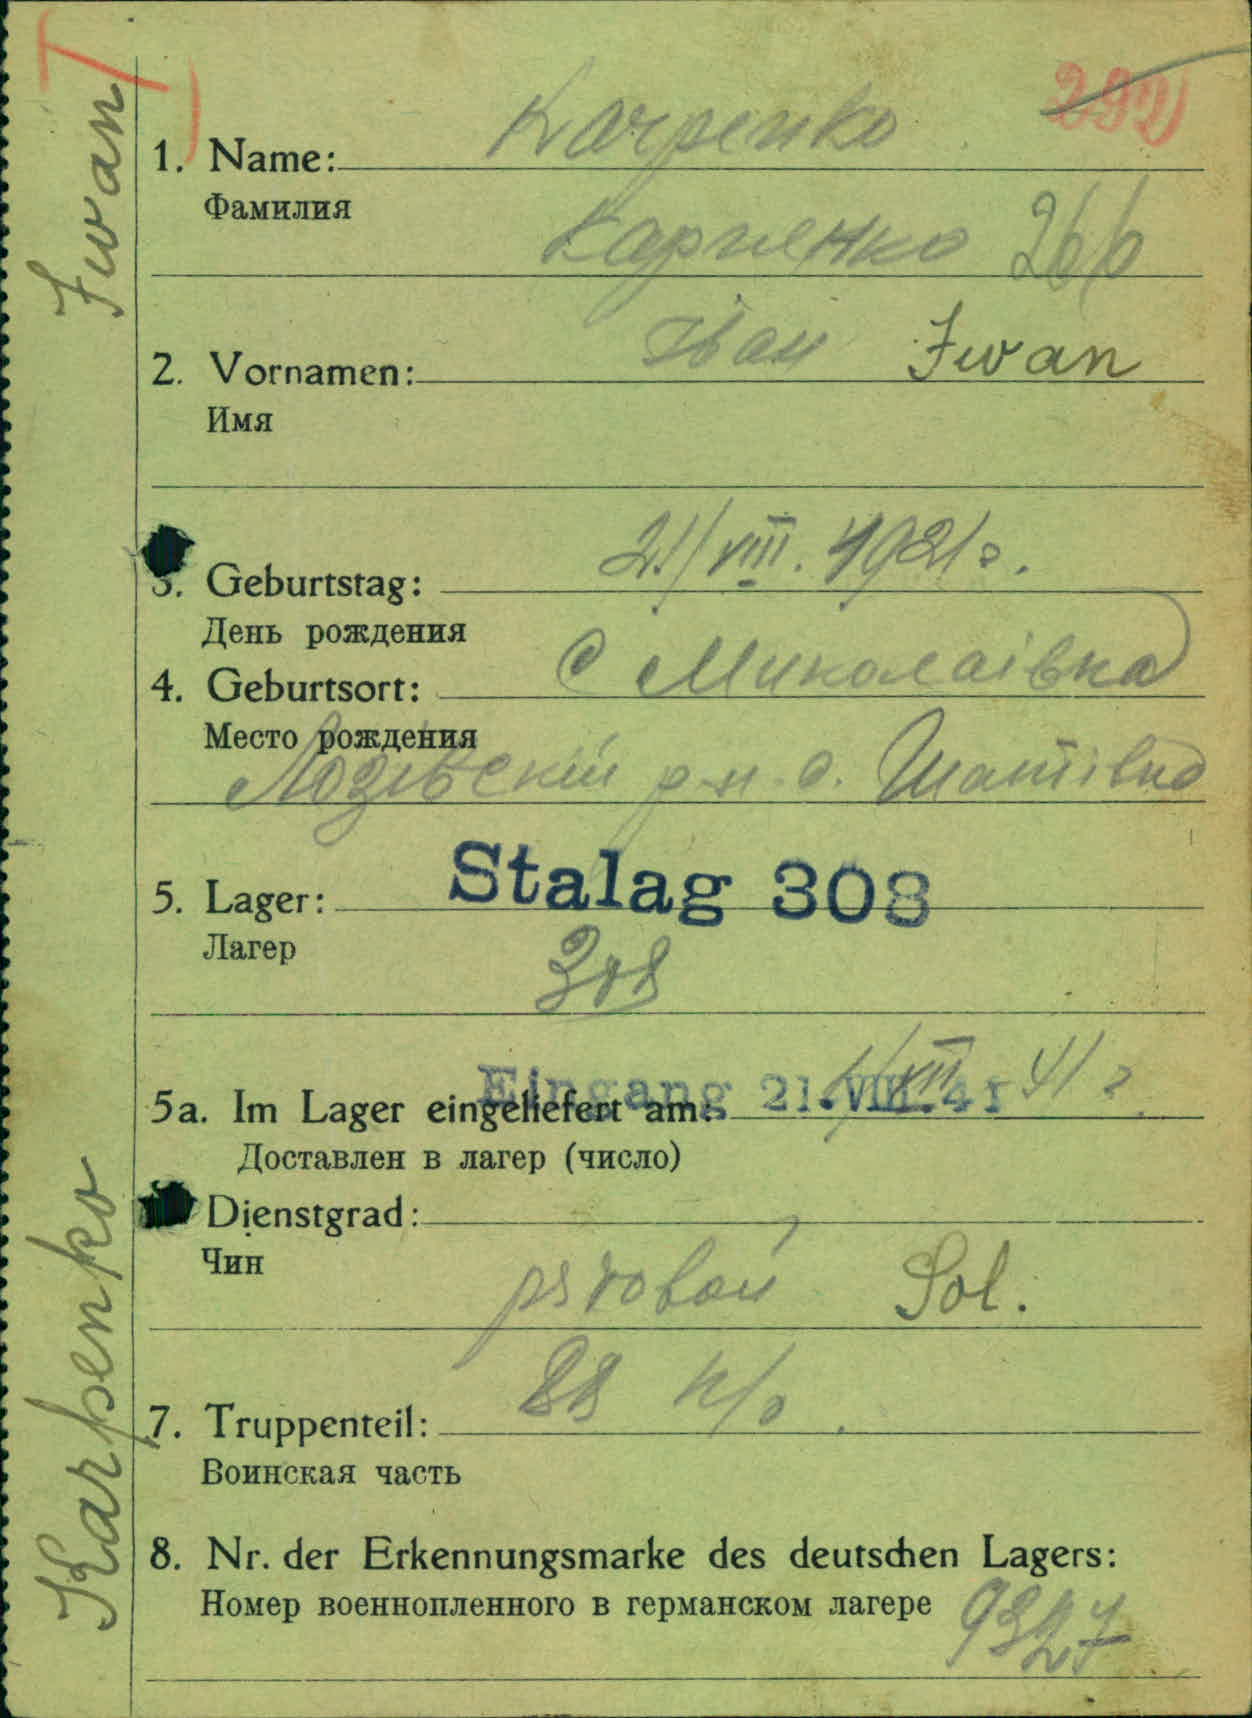 Karpenko Iwan
292
1. Name: Karpenko
Фамилия
Карпенко 266
2. Vornamen: Іван Iwan
Имя
3. Geburtstag: 21/VIII. 1921 г.
День рождения
4. Geburtsort: С Миколаівка
Место рождения
Лозівский р-н с.
5. Lager: Stalag 308
Лагер
308
Eingang 21. VIII. 41
5a. Im Lager eingeliefert am: VIII 41 г
Доставлен в лагер (число)
Dienstgrad:
Чин
рядовой Sol.
7. Truppenteil: 88
Воинская часть
8. Nr. der Erkennungsmarke des deutschen Lagers:
Номер военнопленного в германском лагере 9327